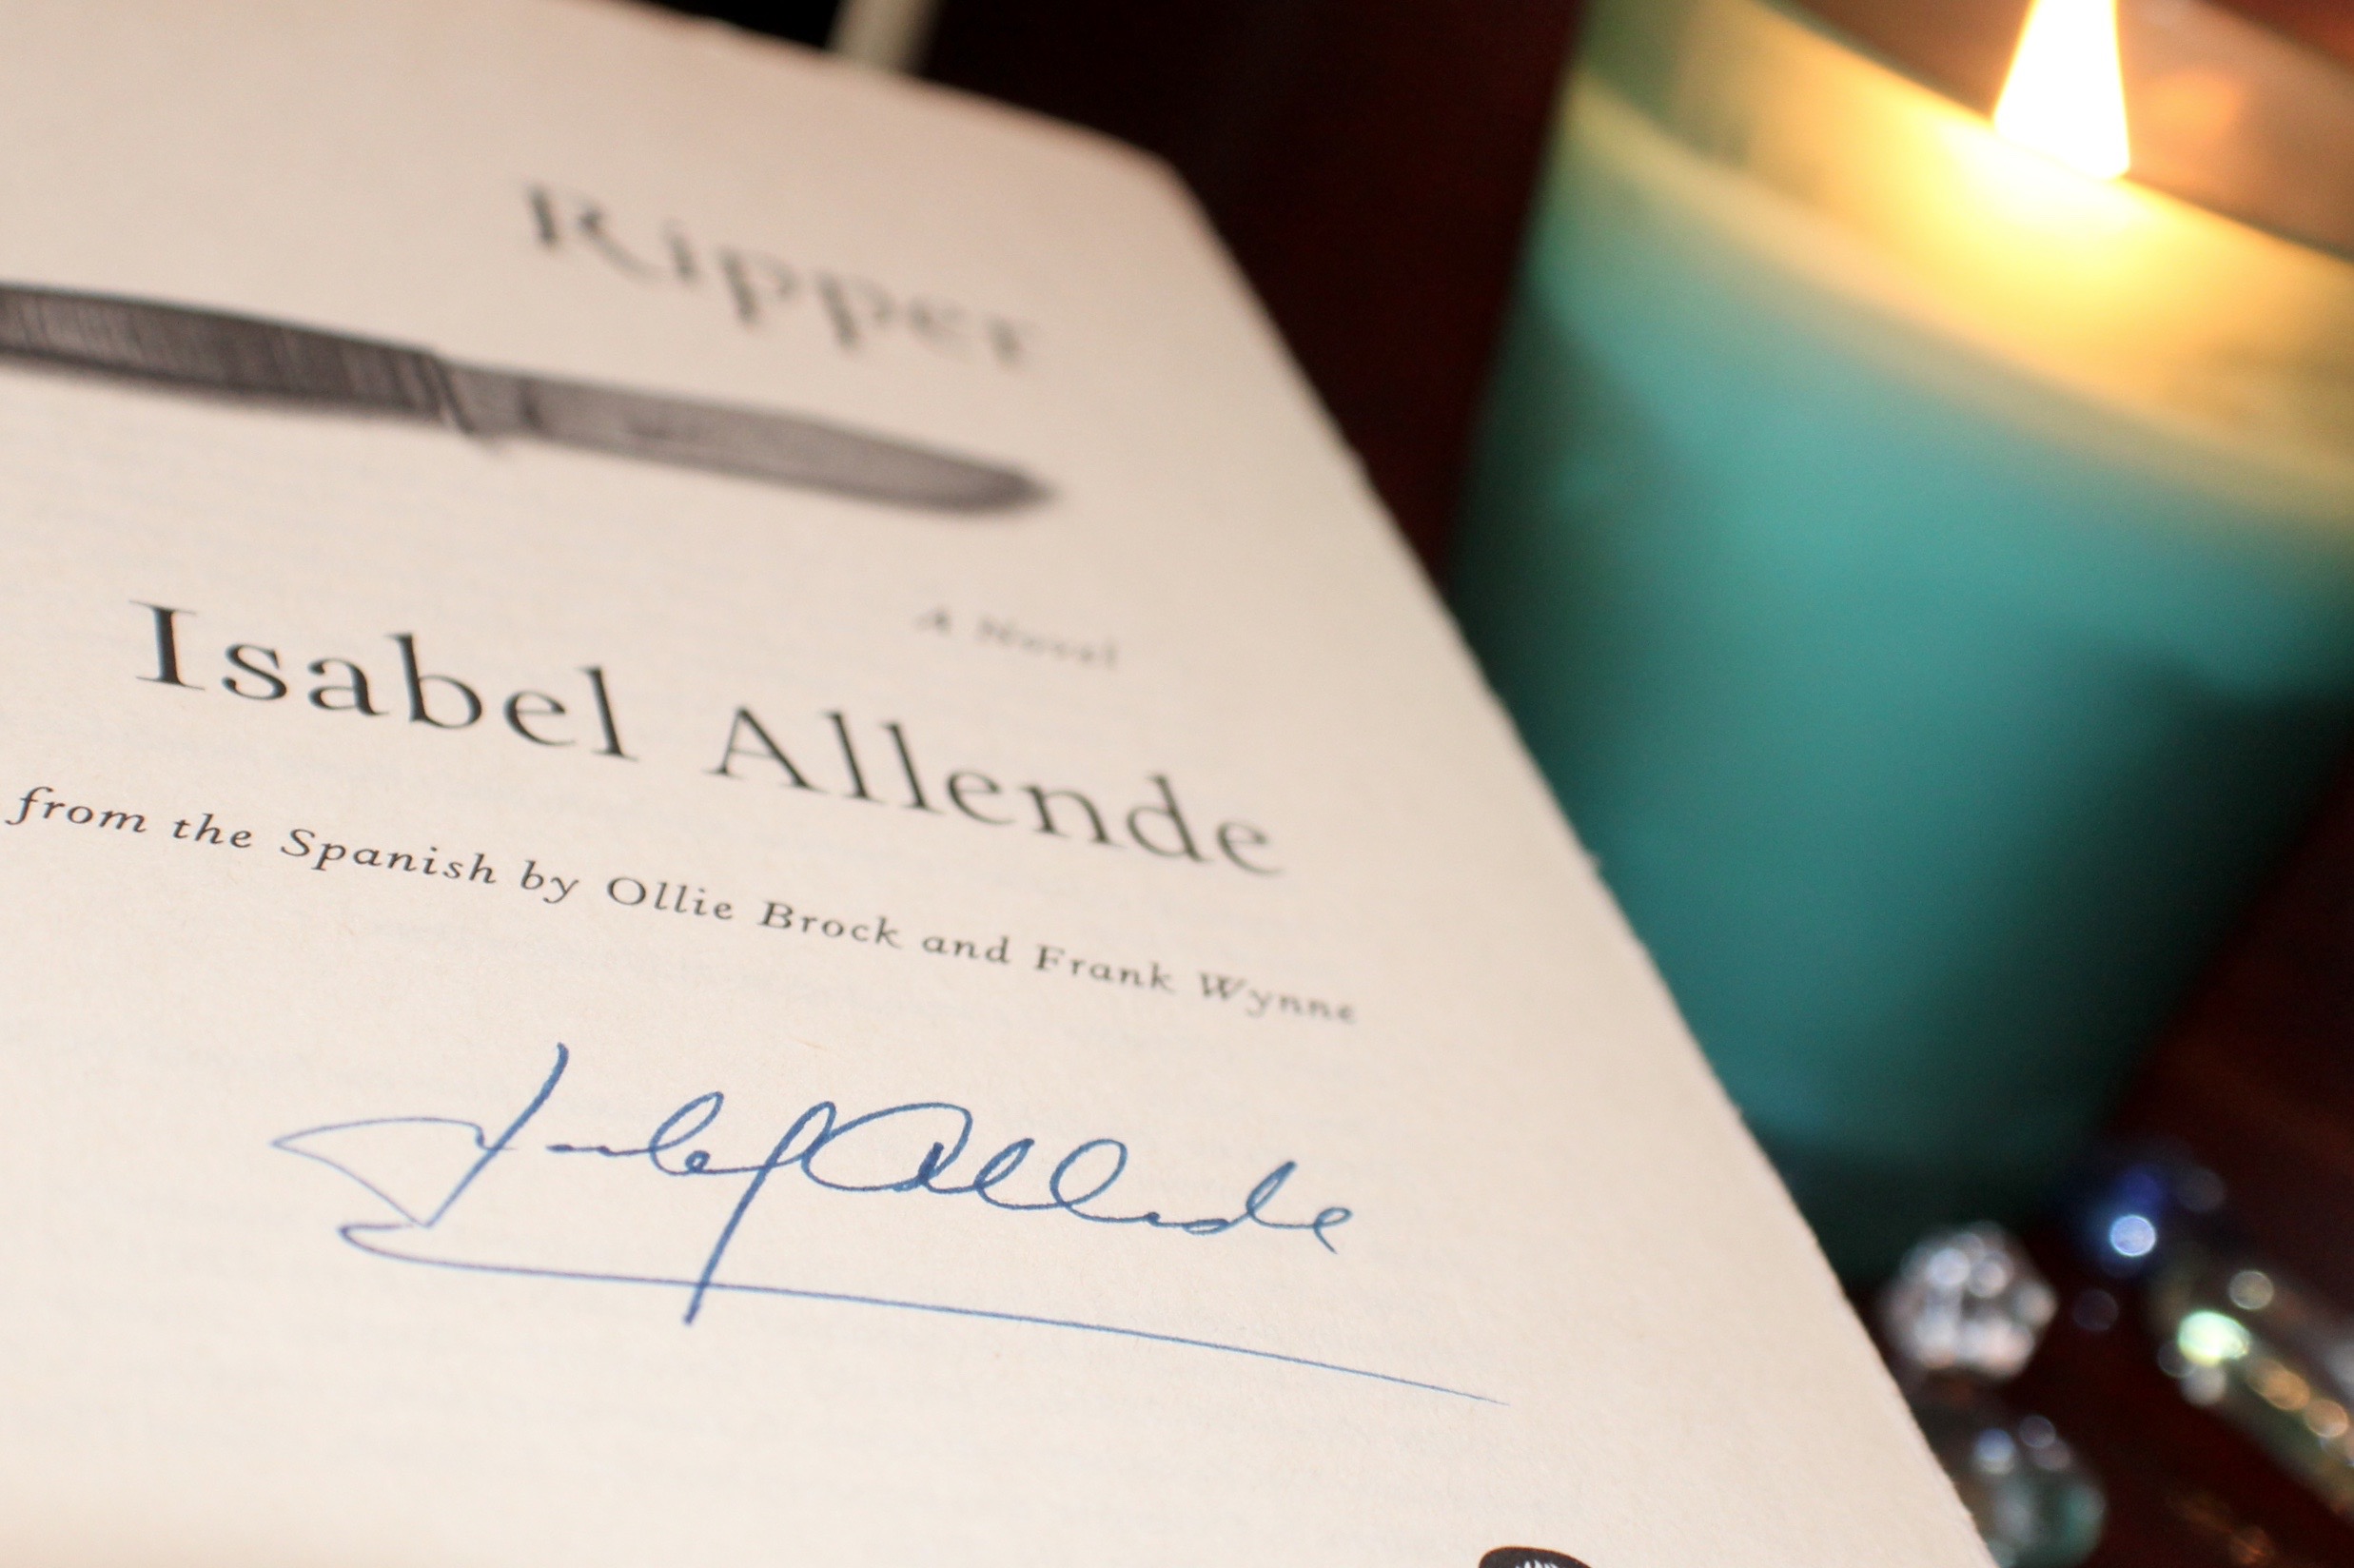 Ripper
A Novel
Isabel Allende
from the Spanish by Ollie Brock and Frank Wynne
Isabel Allende